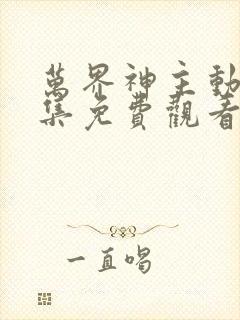 萬界神主動
集免費觀看
一直唱